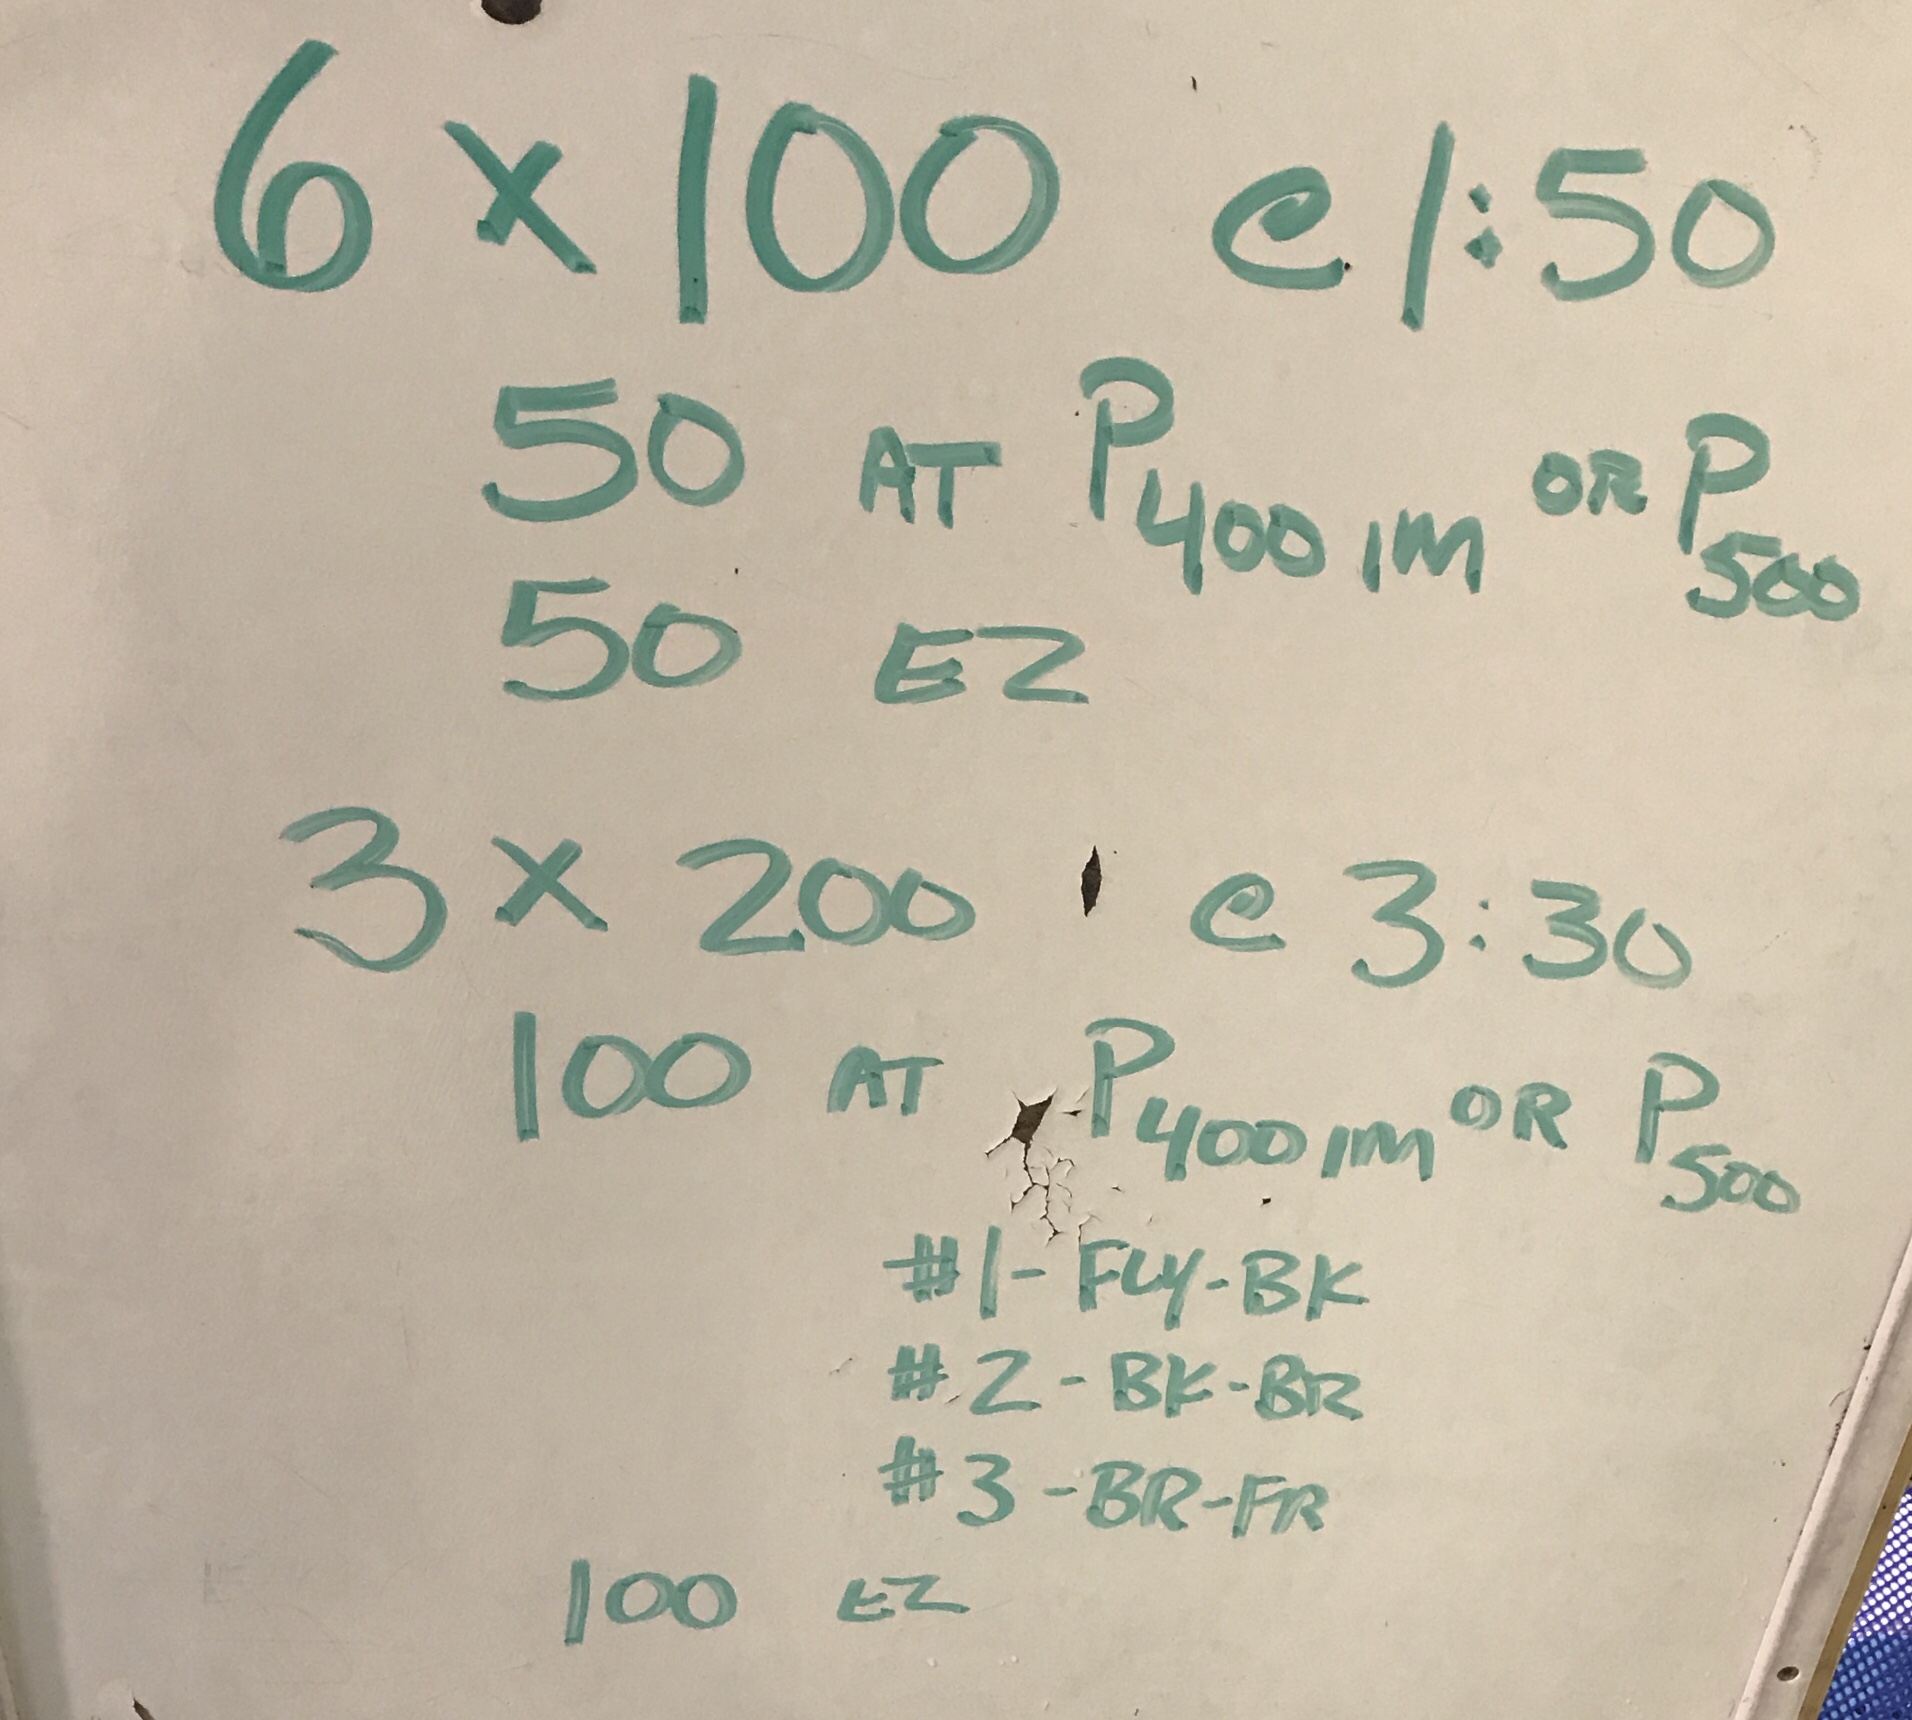 6 x 100 @ 1:50
50 AT P400 IM OR P500
50 EZ
3 x 200 @ 3:30
100 AT P400 IM OR P500
#1- FLY-BK
#2 - BK-BR
#3 - BR-FR
100 EZ